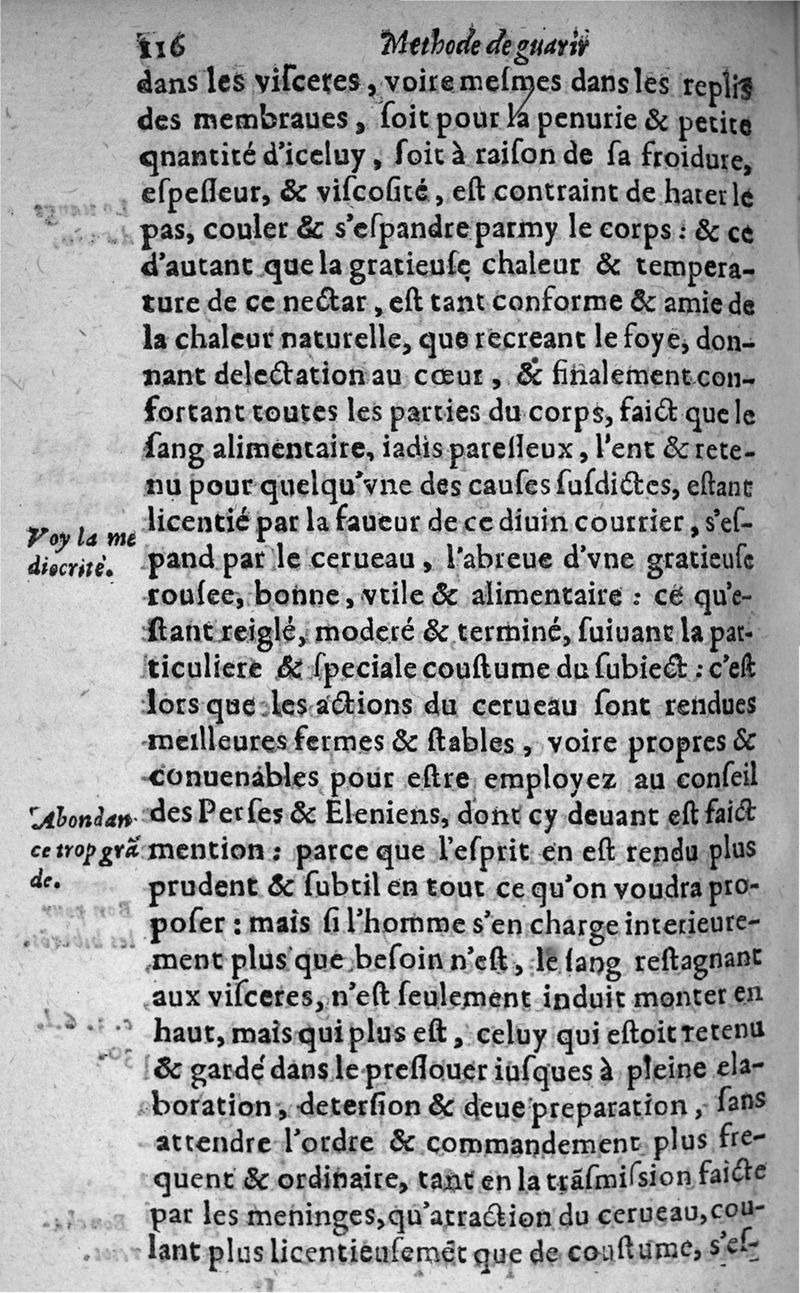 116 Methode de guarir
dans les viſceres, voire meſmes dans les replis
des membraues, ſoit pour la penurie & petite
qnantité d'iceluy, ſoit à raiſon de ſa froidure,
eſpeſſeur, & viſcoſité, eſt contraint de hater le
pas, couler & s'eſpandre parmy le corps : & ce
d'autant que la gratieuſe chaleur & tempera-
ture de ce nectar, eſt tant conforme & amie de
la chaleur naturelle, que recreant le foye, don-
nant delectation au cœur, & finalement con-
fortant toutes les parties du corps, faict que le
ſang alimentaire, iadis pareſſeux, l'ent & rete-
nu pour quelqu'vne des cauſes ſuſdictes, eſtant
licentié par la faueur de ce diuin courrier, s'eſ-
Voy la me
diocrité.
pand par le cerueau, l'abreue d'vne gratieuſe
rouſee, bonne, vtile & alimentaire : ce qu'e-
ſtant reiglé, moderé & terminé, ſuiuant la par-
ticuliere & ſpeciale couſtume du ſubiect : c'eſt
lors que les actions du cerueau ſont rendues
meilleures fermes & ſtables, voire propres &
conuenables pour eſtre employez au conſeil
Abondan-
ce trop grã
de.
des Perſes & Eleniens, dont cy deuant eſt faict
mention : parce que l'eſprit en eſt rendu plus
prudent & ſubtil en tout ce qu'on voudra pro-
poſer : mais ſi l'homme s'en charge interieure-
ment plus que beſoin n'eſt, le ſang reſtagnant
aux viſceres, n'eſt ſeulement induit monter en
haut, mais qui plus eſt, celuy qui eſtoit retenu
& gardé dans le preſſouer iuſques à pleine ela-
boration, deterſion & deue preparation, ſans
attendre l'ordre & commandement plus fre-
quent & ordinaire, tant en la trãſmiſsion faicte
par les meninges, qu'atraction du cerueau, cou-
lant plus licentieuſemẽt que de couſtume, s'eſ-